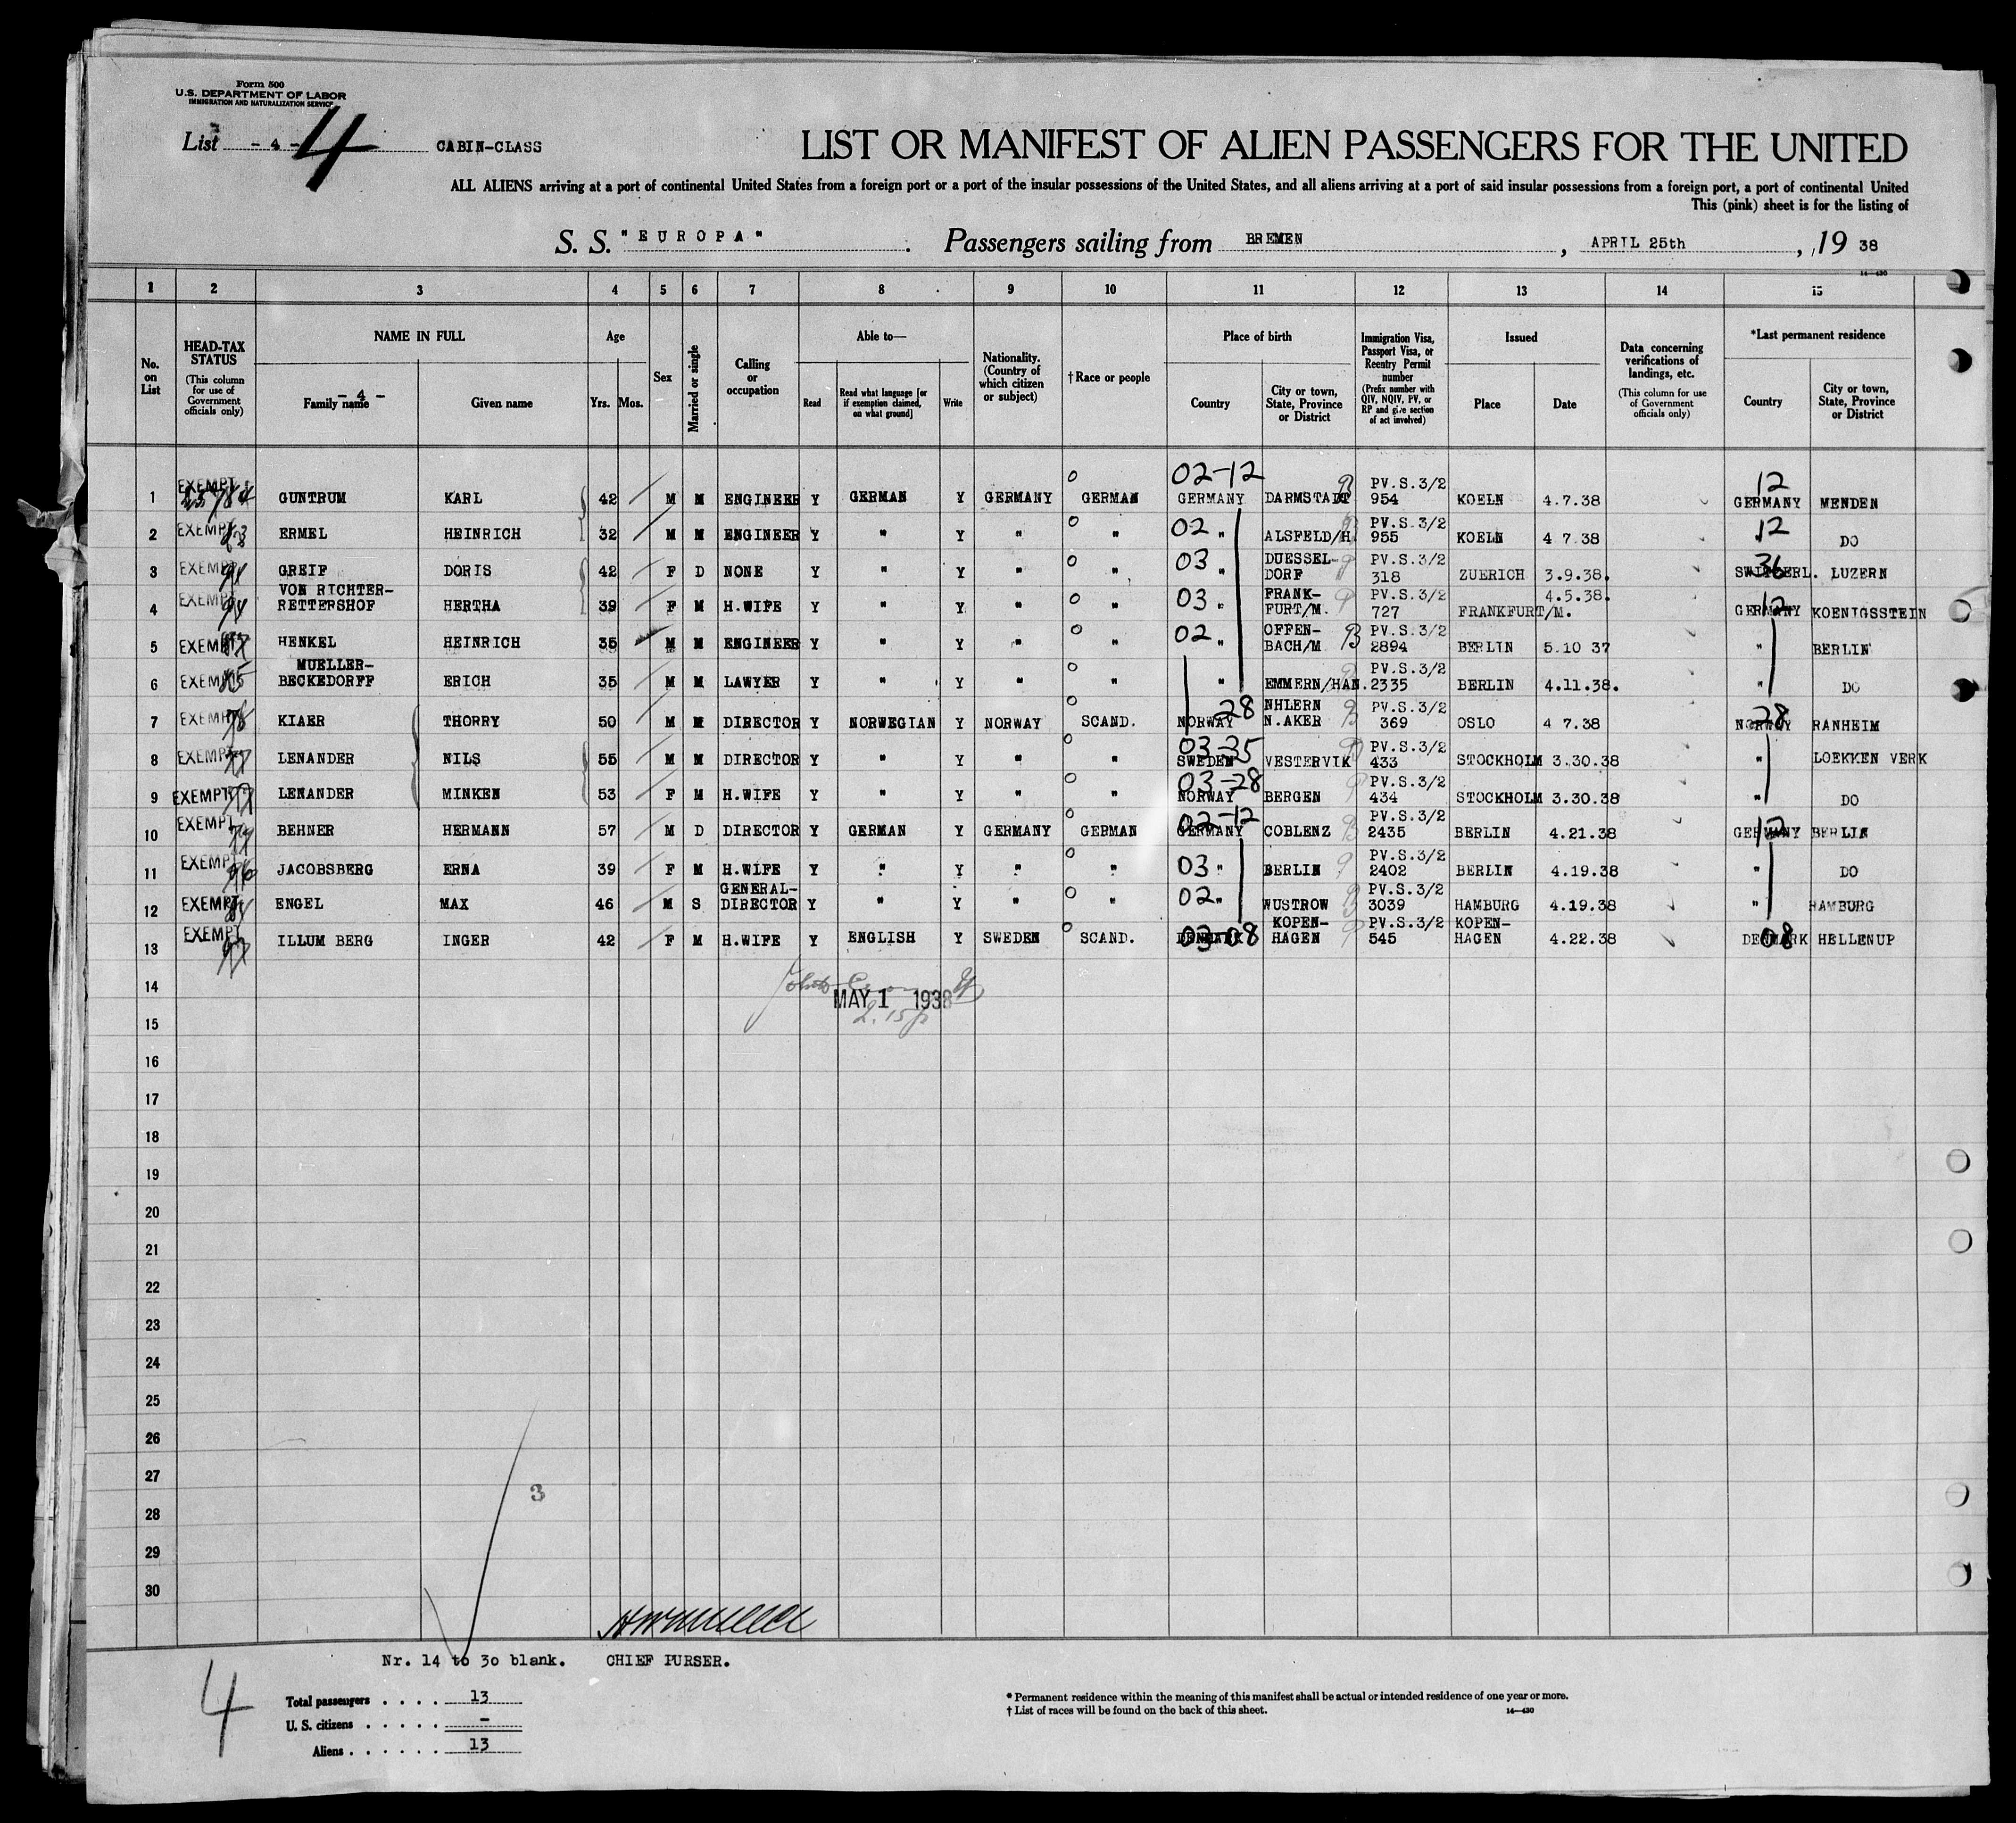 Form 500
U.S. DEPARTMENT OF LABOR
IMMIGRATION AND NATURALIZATION SERVICE
List - 4 - 4 CABIN-CLASS
LIST OR MANIFEST OF ALIEN PASSENGERS FOR THE UNITED
ALL ALIENS arriving at a port of continental United States from a foreign port or a port of the insular possessions of the United States, and all aliens arriving at a port of said insular possessions from a foreign port, a port of continental United
This (pink) sheet is for the listing of
S. S. "EUROPA". Passengers sailing from BREMEN, APRIL 25th, 19 38
14—430
1 2 3 4 5 6 7 8 9 10 11 12 13 14 15
No. on List
HEAD-TAX STATUS (This column for use of Government officials only)
NAME IN FULL
- 4 -
Family name Given name
Age
Yrs. Mos.
Sex
Married or single
Calling or occupation
Able to—
Read Read what language [or if exemption claimed, on what ground] Write
Nationality. (Country of which citizen or subject)
† Race or people
Place of birth
Country City or town, State, Province or District
Immigration Visa, Passport Visa, or Reentry Permit number (Prefix number with QIV, NQIV, PV, or RP and give section of act involved)
Issued
Place Date
Data concerning verifications of landings, etc. (This column for use of Government officials only)
*Last permanent residence
Country City or town, State, Province or District
1 EXEMPT GUNTRUM KARL 42 M M ENGINEER Y GERMAN Y GERMANY GERMAN 02-12 GERMANY DARMSTADT PV.S.3/2 954 KOELN 4.7.38 12 GERMANY MENDEN
2 EXEMPT ERMEL HEINRICH 32 M M ENGINEER Y " Y " " 02 " ALSFELD/H PV.S.3/2 955 KOELN 4 7.38 12 " DO
3 EXEMPT GREIF DORIS 42 F D NONE Y " Y " " 03 " DUESSEL-DORF PV.S.3/2 318 ZUERICH 3.9.38. 36 SWITZERL. LUZERN
4 EXEMPT VON RICHTER-RETTERSHOF HERTHA 39 F M H.WIFE Y " Y " " 03 " FRANK-FURT/M. PV.S.3/2 727 FRANKFURT/M. 4.5.38. 12 GERMANY KOENIGSSTEIN
5 EXEMPT HENKEL HEINRICH 35 M M ENGINEER Y " Y " " 02 " OFFEN-BACH/M PV.S.3/2 2894 BERLIN 5.10 37 " BERLIN
6 EXEMPT MUELLER-BECKEDORFF ERICH 35 M M LAWYER Y " Y " " " EMMERN/HAN. PV.S.3/2 2335 BERLIN 4.11.38. " DO
7 EXEMPT KIAER THORRY 50 M M DIRECTOR Y NORWEGIAN Y NORWAY SCAND. 28 NORWAY NHLERN N.AKER PV.S.3/2 369 OSLO 4 7.38 28 NORWAY RANHEIM
8 EXEMPT LENANDER NILS 55 M M DIRECTOR Y " Y " " 03-35 SWEDEN VESTERVIK PV.S.3/2 433 STOCKHOLM 3.30.38 " LOEKKEN VERK
9 EXEMPT LENANDER MINKEN 53 F M H.WIFE Y " Y " " 03-28 NORWAY BERGEN PV.S.3/2 434 STOCKHOLM 3.30.38 " DO
10 EXEMPT BEHNER HERMANN 57 M D DIRECTOR Y GERMAN Y GERMANY GERMAN 02-12 GERMANY COBLENZ PV.S.3/2 2435 BERLIN 4.21.38 12 GERMANY BERLIN
11 EXEMPT JACOBSBERG ERNA 39 F M H.WIFE Y " Y " " 03 " BERLIN PV.S.3/2 2402 BERLIN 4.19.38 " DO
12 EXEMPT ENGEL MAX 46 M S GENERAL-DIRECTOR Y " Y " " 02 " WUSTROW PV.S.3/2 3039 HAMBURG 4.19.38 " HAMBURG
13 EXEMPT ILLUM BERG INGER 42 F M H.WIFE Y ENGLISH Y SWEDEN SCAND. 03-08 DENMARK KOPEN-HAGEN PV.S.3/2 545 KOPEN-HAGEN 4.22.38 08 DENMARK HELLENUP
14
MAY 1 1938
2.15p
15
16
17
18
19
20
21
22
23
24
25
26
27
28
29
30
3
Nr. 14 to 30 blank. CHIEF PURSER.
4
Total passengers . . . . 13
U. S. citizens . . . . . -
Aliens . . . . . . 13
* Permanent residence within the meaning of this manifest shall be actual or intended residence of one year or more.
† List of races will be found on the back of this sheet. 14—430